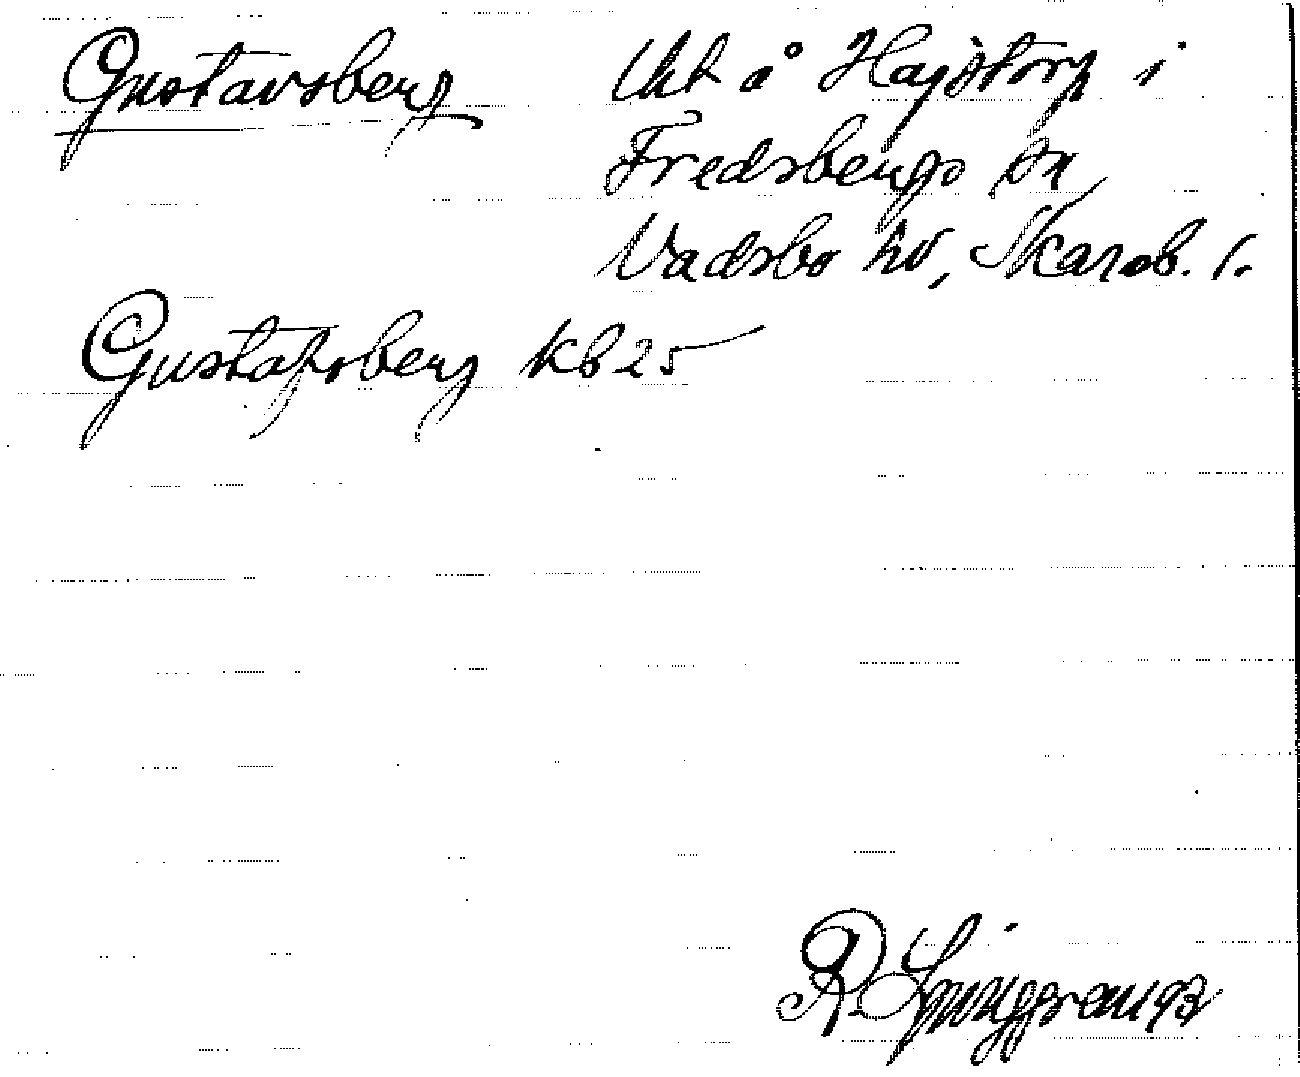 Gustavsberg Uht å Hajstorp i
Fredsbergs sn
Vadsbo hd, Skarab. l.
Gustafsberg Kb 25
R. Ljunggren 193